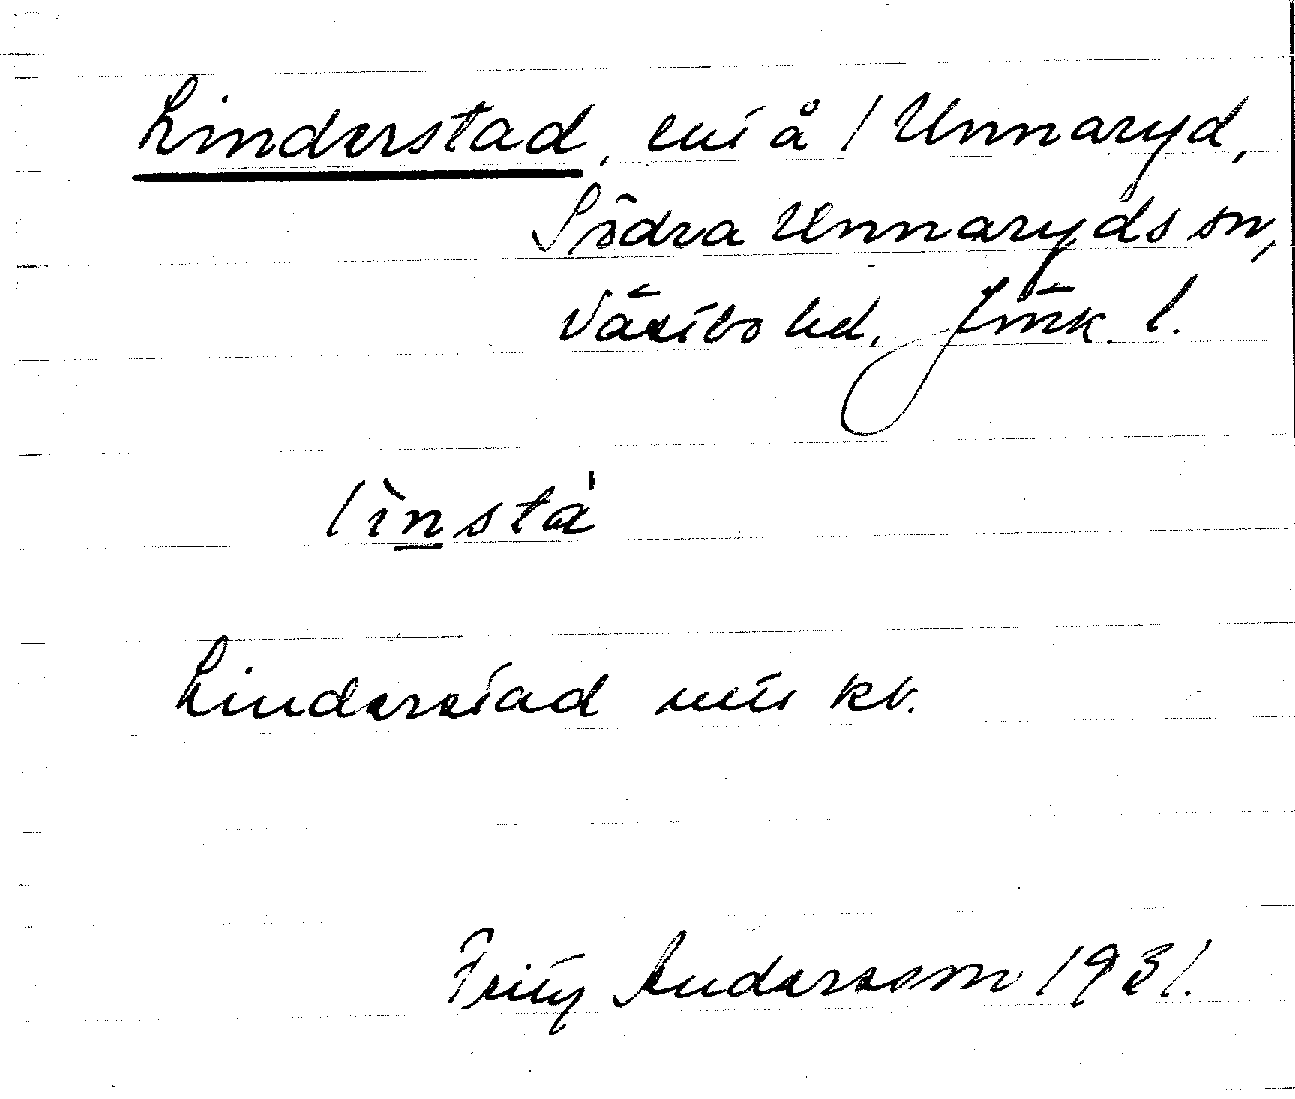 Linderstad, på / Unnaryd,
Södra Unnaryds sn,
Västbo hd. Jönk. l.
lìnstá
Linderstad kb.
Fritz Andersson 1931.